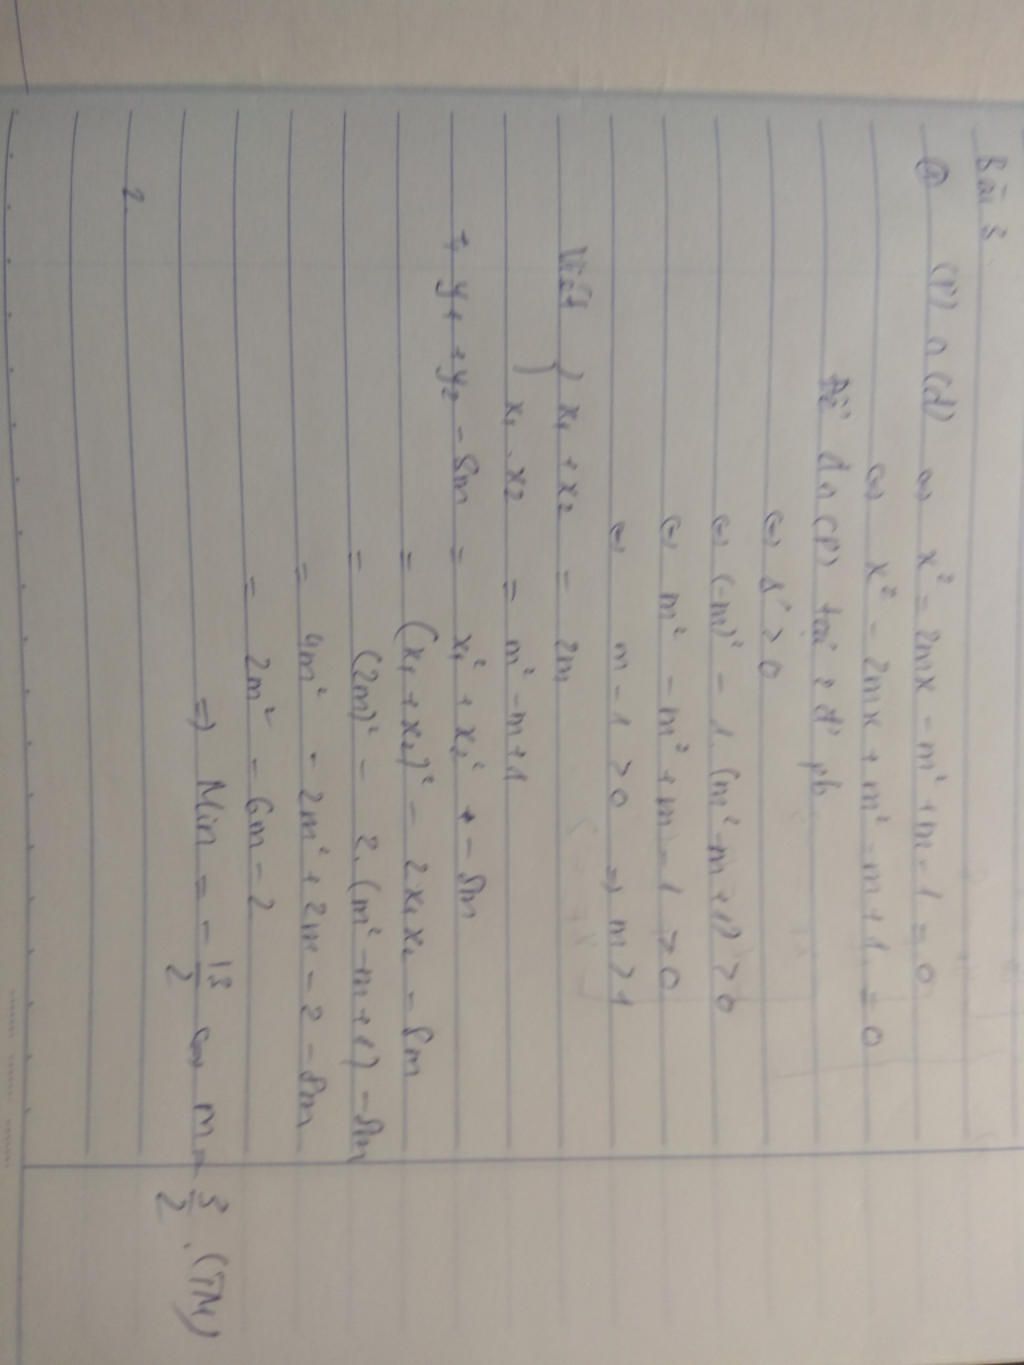 Bài 3
ⓐ (P) ∩ (d) ⇔ x² = 2mx - m² + m - 1 = 0
⇔ x² - 2mx + m² - m + 1 = 0
Để d ∩ (P) tại 2 đ' pb
⇔ Δ' > 0
⇔ (-m)² - 1.(m² - m + 1) > 0
⇔ m² - m² + m - 1 > 0
⇔ m - 1 > 0 ⇒ m > 1
Viét { x₁ + x₂ = 2m
x₁ . x₂ = m² - m + 1
y₁ + y₂ - 8m = x₁² + x₂² + - 8m
= (x₁ + x₂)² - 2x₁x₂ - 8m
= (2m)² - 2.(m² - m + 1) - 8m
= 4m² - 2m² + 2m - 2 - 8m
= 2m² - 6m - 2
⇒ Min = - 13/2 ⇔ m = 3/2 . (TM)
2.